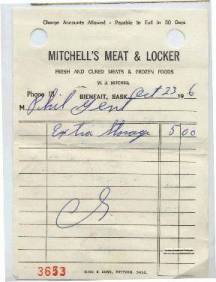 Charge Accounts Allowed - Payable In Full in 30 Days
MITCHELL'S MEAT & LOCKER
FRESH AND CURED MEATS & FROZEN FOODS
W. J. MITCHELL
Phone
BIENFAIT, SASK. Oct 23 196
M Phil
Extra Storage 5 00
3653